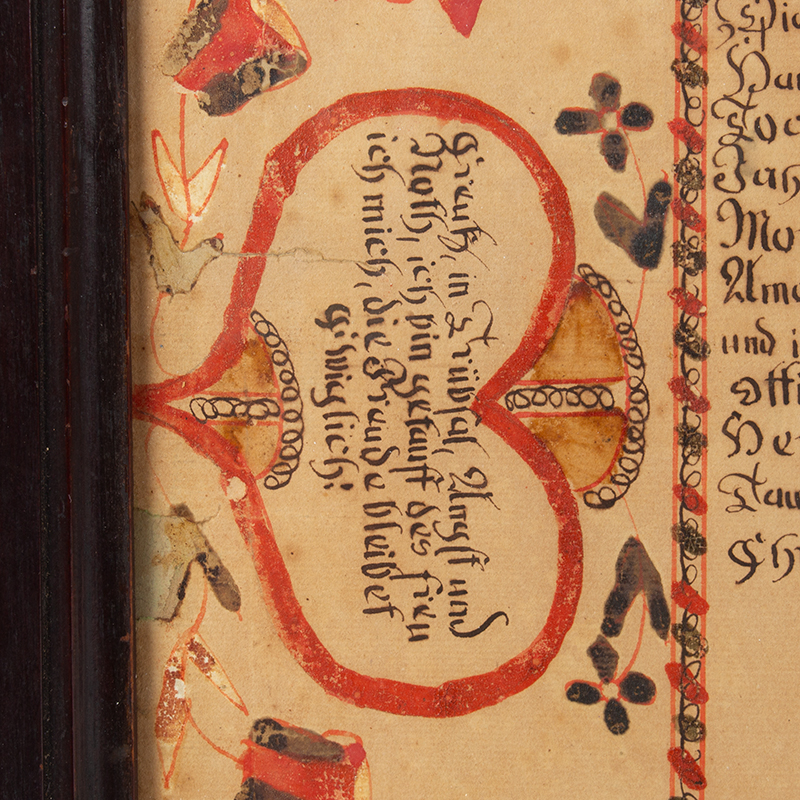 Creutz, in Trübsal, Angst und
Noth, ich bin getauft des freu
ich mich, die Freude bleibet
Ewiglich:
Jah
Mo
Ame
und i
offi
He
Tau
Ch